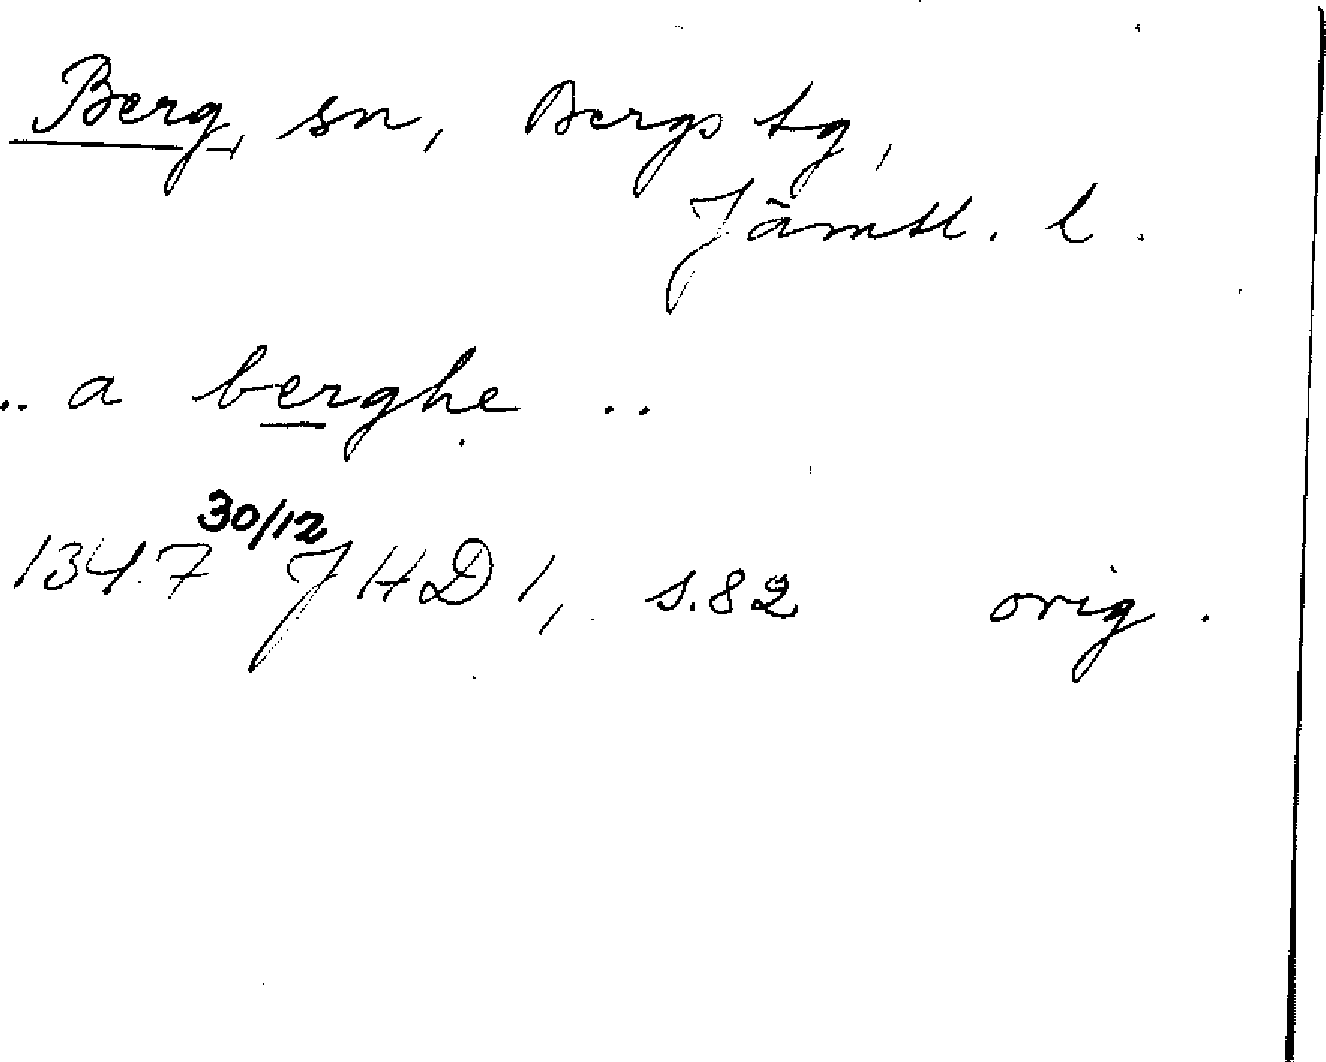 Berg, sn, Bergs tg,
Jämtl. l.
.. a berghe ..
1347 30/12 JHD 1, s. 82 orig.